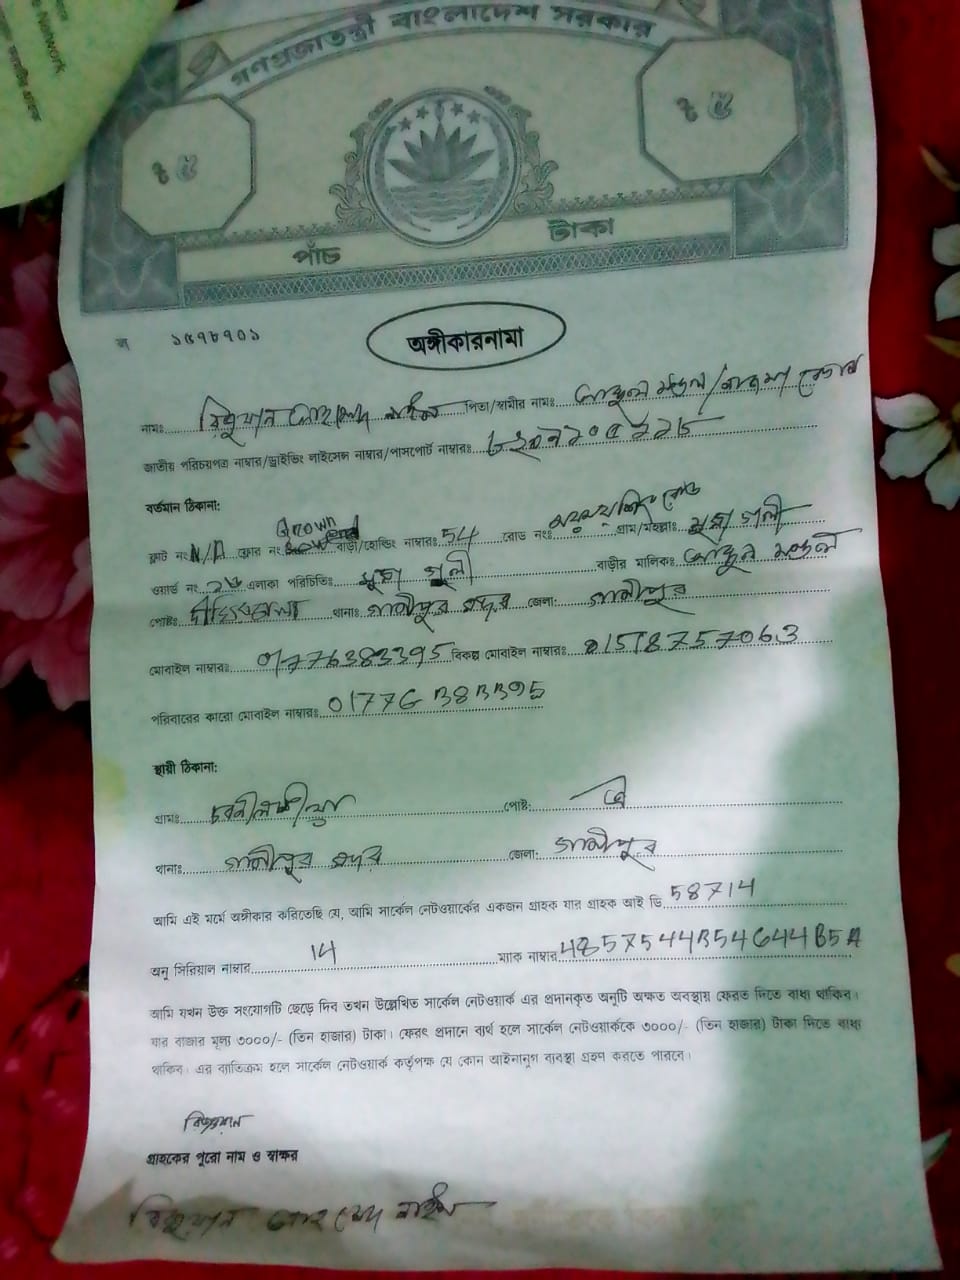 Network
গণপ্রজাতন্ত্রী বাংলাদেশ সরকার
৳ ৫ ৳ ৫
পাঁচ টাকা
১৫৭৮৭০১
অঙ্গীকারনামা
নামঃ পিতা/স্বামীর নামঃ
জাতীয় পরিচয়পত্র নাম্বার/ড্রাইভিং লাইসেন্স নাম্বার/পাসপোর্ট নাম্বারঃ
বর্তমান ঠিকানা:
ফ্লাট নং N/A ফ্লোর নং Grown বাড়ী/হোল্ডিং নাম্বারঃ 54 রোড নংঃ রোড গ্রাম/মহল্লাঃ
ওয়ার্ড নং এলাকা পরিচিতিঃ বাড়ীর মালিকঃ
পোষ্টঃ থানাঃ গাজীপুর সদর জেলা: গাজীপুর
মোবাইল নাম্বারঃ 01776383395 বিকল্প মোবাইল নাম্বারঃ 01518757063
পরিবারের কারো মোবাইল নাম্বারঃ 01776383395
স্থায়ী ঠিকানা:
গ্রামঃ পোষ্ট: ঐ
থানাঃ গাজীপুর সদর জেলা: গাজীপুর
আমি এই মর্মে অঙ্গীকার করিতেছি যে, আমি সার্কেল নেটওয়ার্কের একজন গ্রাহক যার গ্রাহক আই ডি 58714
অনু সিরিয়াল নাম্বার 14 ম্যাক নাম্বার 4857544B54C644B5A
আমি যখন উক্ত সংযোগটি ছেড়ে দিব তখন উল্লেখিত সার্কেল নেটওয়ার্ক এর প্রদানকৃত অনুটি অক্ষত অবস্থায় ফেরত দিতে বাধ্য থাকিব।
যার বাজার মূল্য ৩০০০/- (তিন হাজার) টাকা। ফেরৎ প্রদানে ব্যর্থ হলে সার্কেল নেটওয়ার্ককে ৩০০০/- (তিন হাজার) টাকা দিতে বাধ্য
থাকিব। এর ব্যতিক্রম হলে সার্কেল নেটওয়ার্ক কর্তৃপক্ষ যে কোন আইনানুগ ব্যবস্থা গ্রহণ করতে পারবে।
গ্রাহকের পুরো নাম ও স্বাক্ষর